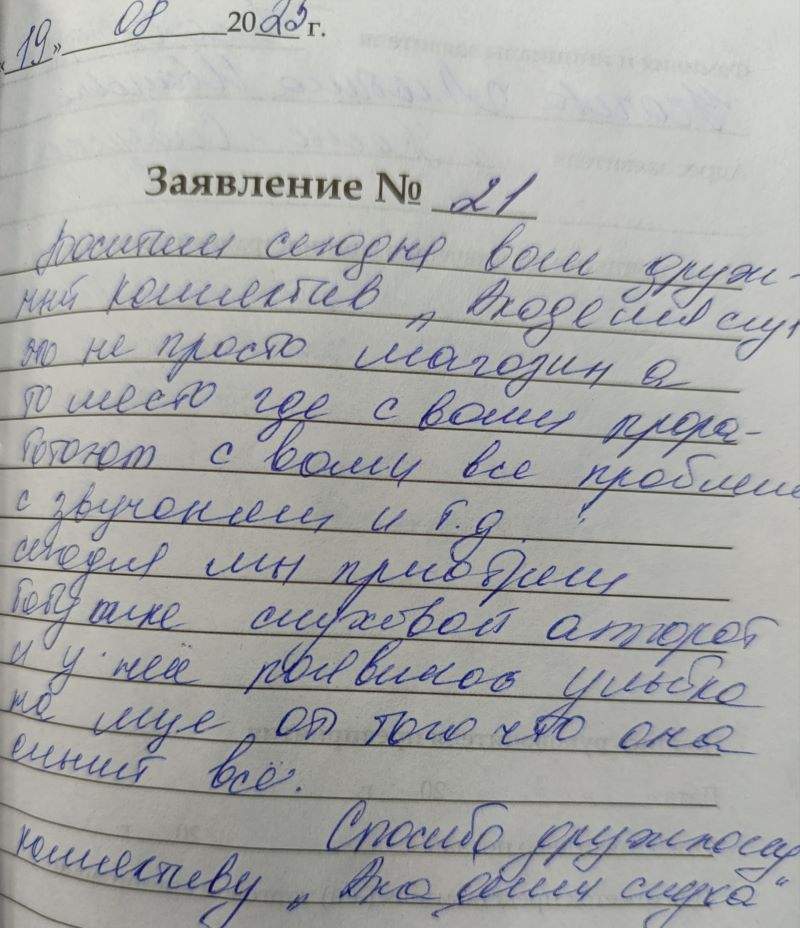 «19» 08 2025 г.
Заявление № 21
Поситили сегодня ваш друж-
ный коллектив „Академия слух
это не просто магазин а
то место где с вами прора-
ботают с вами все проблемы
с звучанием и т.д.
сегодня мы приобрели
бабушке слуховой аппарат
и у неё появилась улыбка
на лице от того что она
слышит всё.
Спасибо дружному
коллективу „Академия слуха"